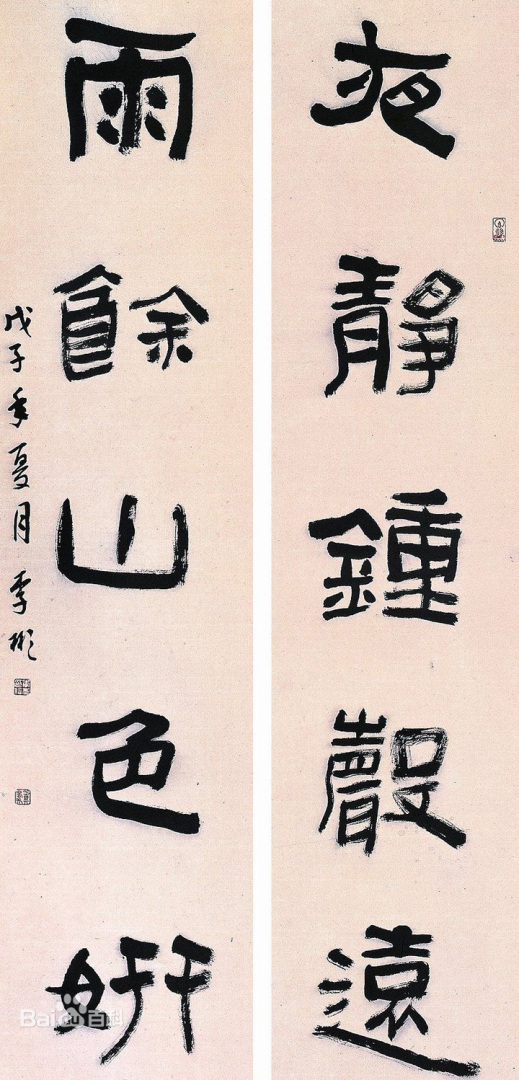 夜靜鍾聲遠
雨餘山色妍
戊子年夏月李彬
Bai百科